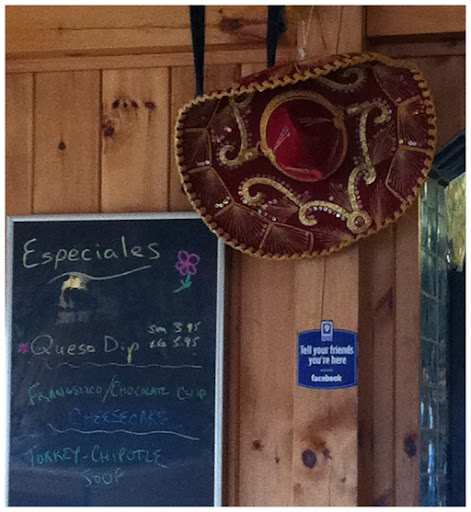 Especiales
Queso Dip sm 3.95
LG 5.95
FRANGELICO/CHOCOLATE CHIP
CHEESECAKE
TURKEY-CHIPOTLE
SOUP
Tell your friends
you're here
facebook